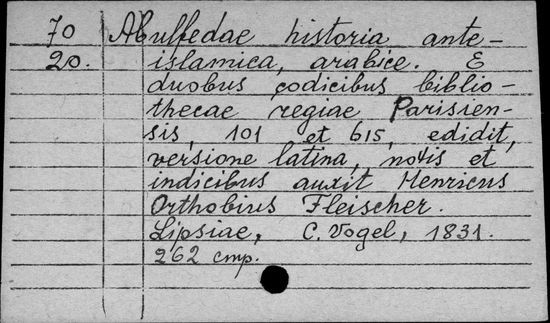 70 Abulfedae historia ante-
20. islamica, arabice. E
duobus codicibus biblio-
thecae regiae Parisien-
sis, 101 et 615, edidit,
versione latina, notis et
indicibus auxit Henricus
Orthobius Fleischer.
Lipsiae, C. Vogel, 1831.
262 стр.